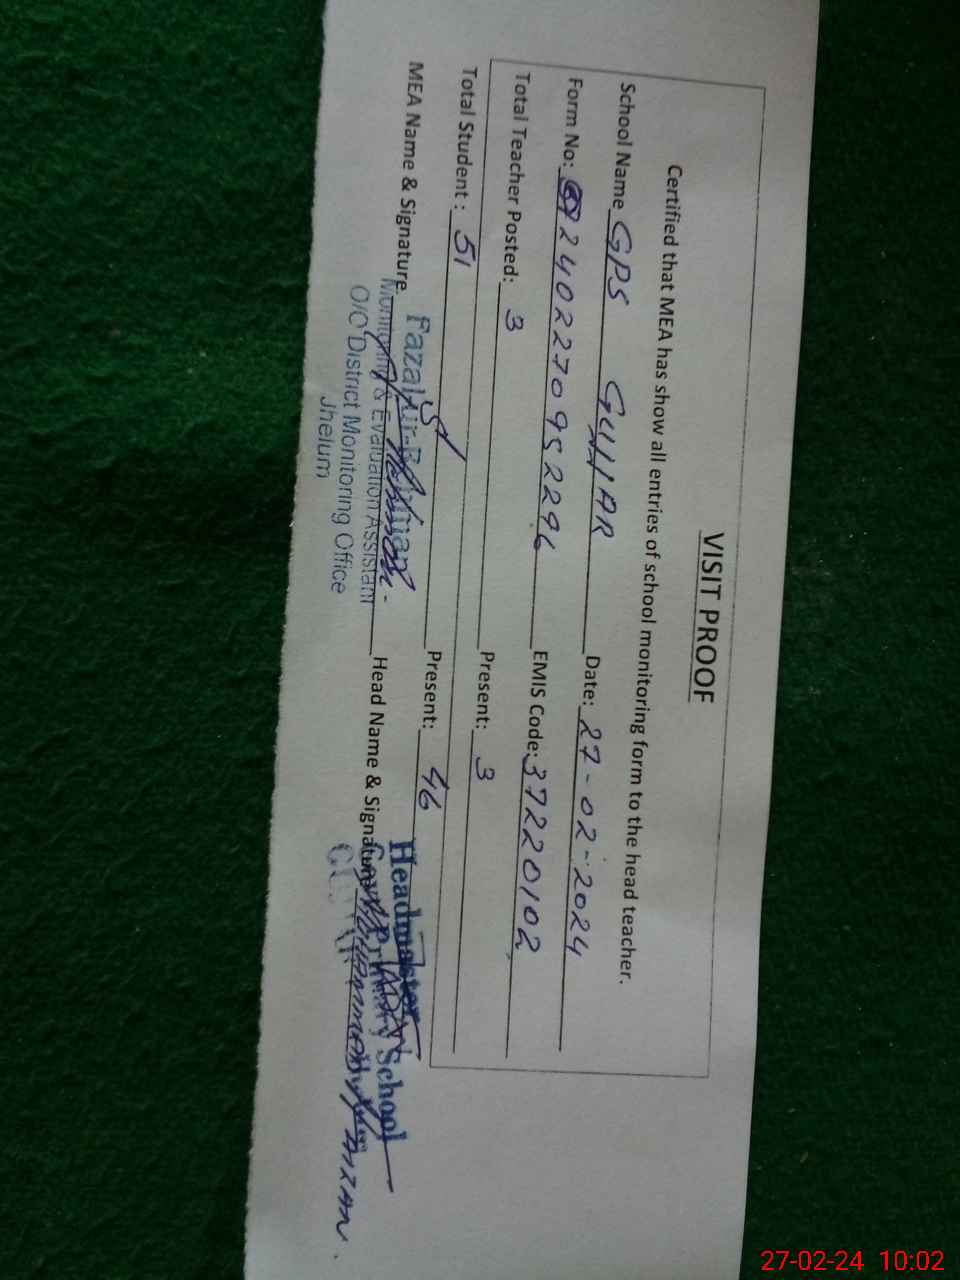 VISIT PROOF
Certified that MEA has show all entries of school monitoring form to the head teacher.
School Name GPS GUHAR Date: 27-02-2024
Form No: 2402270952296 EMIS Code: 37220102
Total Teacher Posted: 3 Present: 3
Total Student : 51 Present: 46
MEA Name & Signature Fazal-ur-Rehman Head Name & Signature Headmaster
Monitoring & Evaluation Assistant Govt. Primary School
O/O District Monitoring Office
Jhelum
27-02-24 10:02